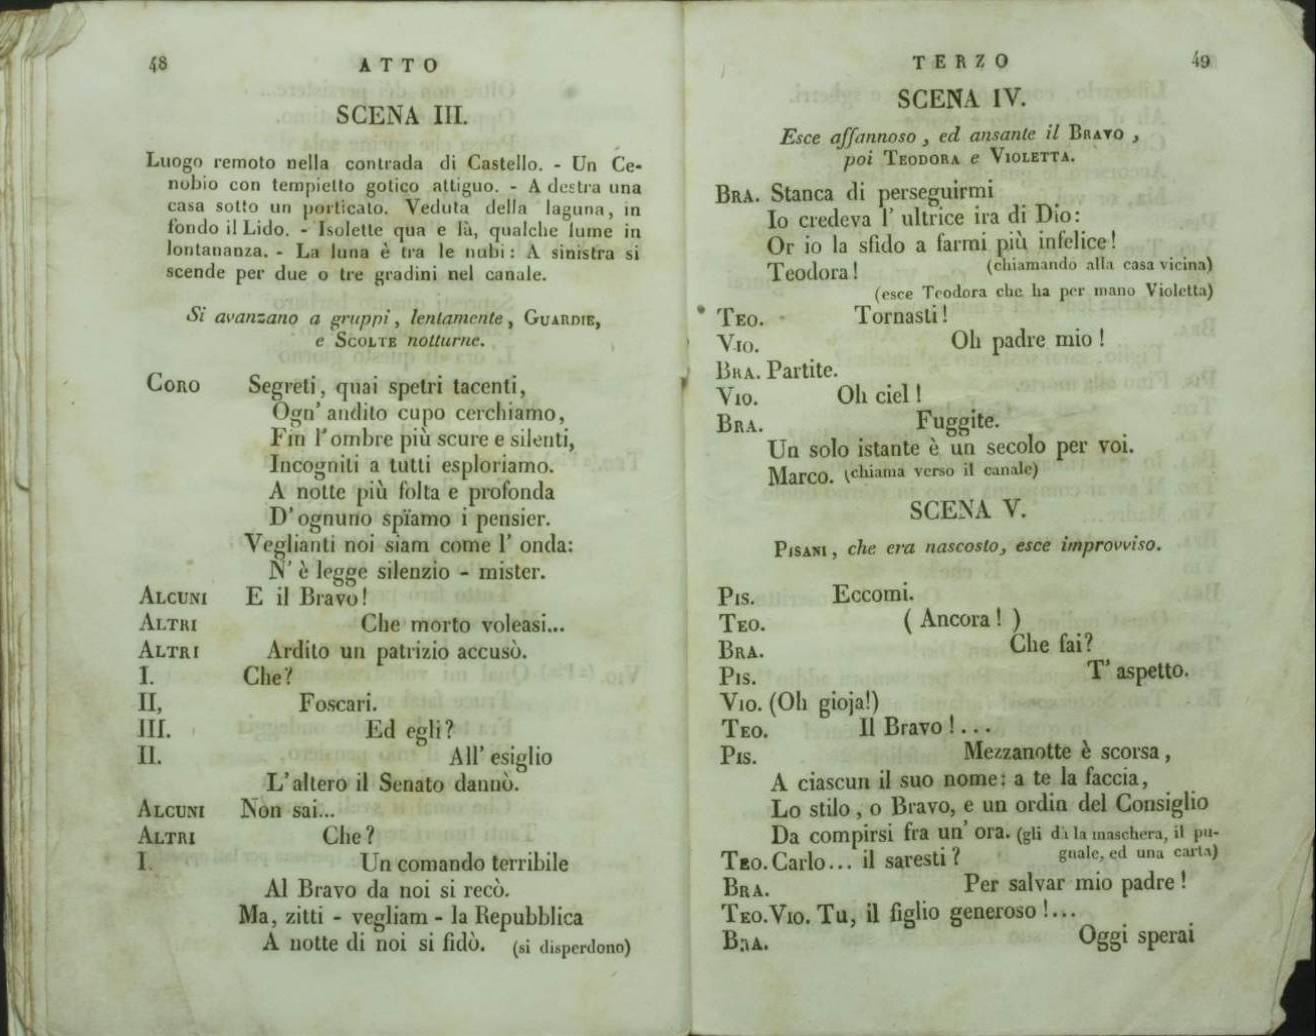 48
ATTO
SCENA III.
Luogo remoto nella contrada di Castello. - Un Ce-
nobio con tempietto gotico attiguo. - A destra una
casa sotto un porticato. Veduta della laguna, in
fondo il Lido. - Isolette qua e là, qualche lume in
lontananza. - La luna è tra le nubi: A sinistra si
scende per due o tre gradini nel canale.
Si avanzano a gruppi, lentamente, GUARDIE,
e SCOLTE notturne.
CORO Segreti, quai spetri tacenti,
Ogn' andito cupo cerchiamo,
Fin l'ombre più scure e silenti,
Incogniti a tutti esploriamo.
A notte più folta e profonda
D'ognuno spïamo i pensier.
Veglianti noi siam come l' onda:
N' è legge silenzio - mister.
ALCUNI E il Bravo!
ALTRI Che morto voleasi...
ALTRI Ardito un patrizio accusò.
I. Che?
II, Foscari.
III. Ed egli?
II. All' esiglio
L'altero il Senato dannò.
ALCUNI Non sai...
ALTRI Che?
I. Un comando terribile
Al Bravo da noi si recò.
Ma, zitti - vegliam - la Repubblica
A notte di noi si fidò. (si disperdono)
TERZO
49
SCENA IV.
Esce affannoso, ed ansante il BRAVO,
poi TEODORA e VIOLETTA.
BRA. Stanca di perseguirmi
Io credeva l' ultrice ira di Dio:
Or io la sfido a farmi più infelice!
Teodora! (chiamando alla casa vicina)
(esce Teodora che ha per mano Violetta)
TEO. Tornasti!
VIO. Oh padre mio!
BRA. Partite.
VIO. Oh ciel!
BRA. Fuggite.
Un solo istante è un secolo per voi.
Marco. (chiama verso il canale)
SCENA V.
PISANI, che era nascosto, esce improvviso.
PIS. Eccomi.
TEO. (Ancora!)
BRA. Che fai?
PIS. T' aspetto.
VIO. (Oh gioja!)
TEO. Il Bravo!...
PIS. Mezzanotte è scorsa,
A ciascun il suo nome: a te la faccia,
Lo stilo, o Bravo, e un ordin del Consiglio
Da compirsi fra un' ora. (gli dà la maschera, il pu-
gnale, ed una carta)
TEO. Carlo... il saresti?
BRA. Per salvar mio padre!
TEO. VIO. Tu, il figlio generoso!...
BRA. Oggi sperai